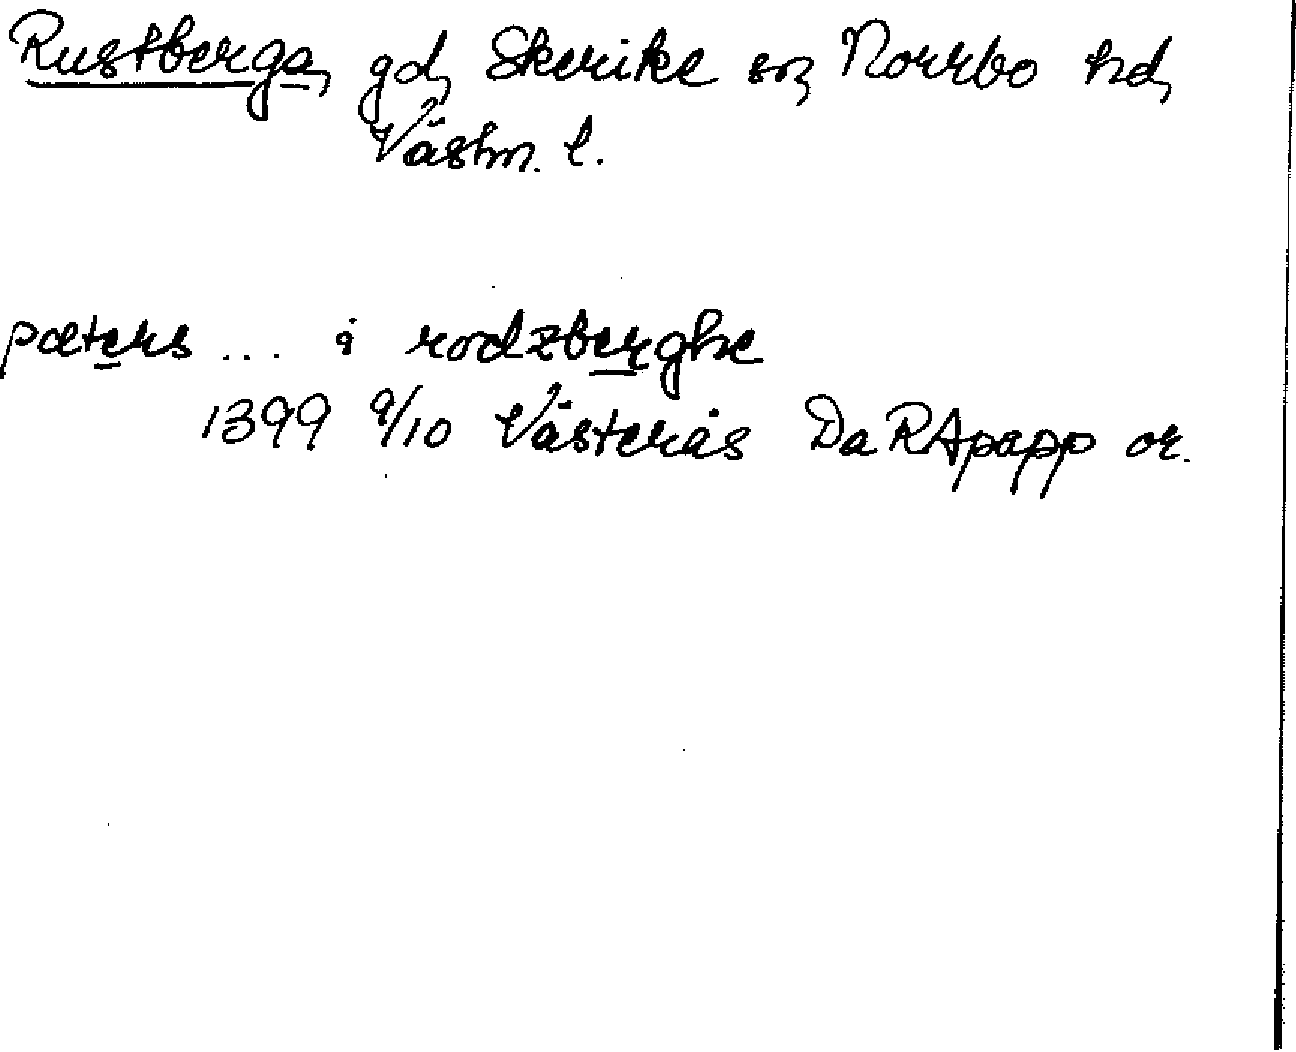 Rustberga, gd, Skerike sn, Norrbo hd,
Västm. l.
pæters ... i rodzberghe
1399 9/10 Västerås Da RApapp or.